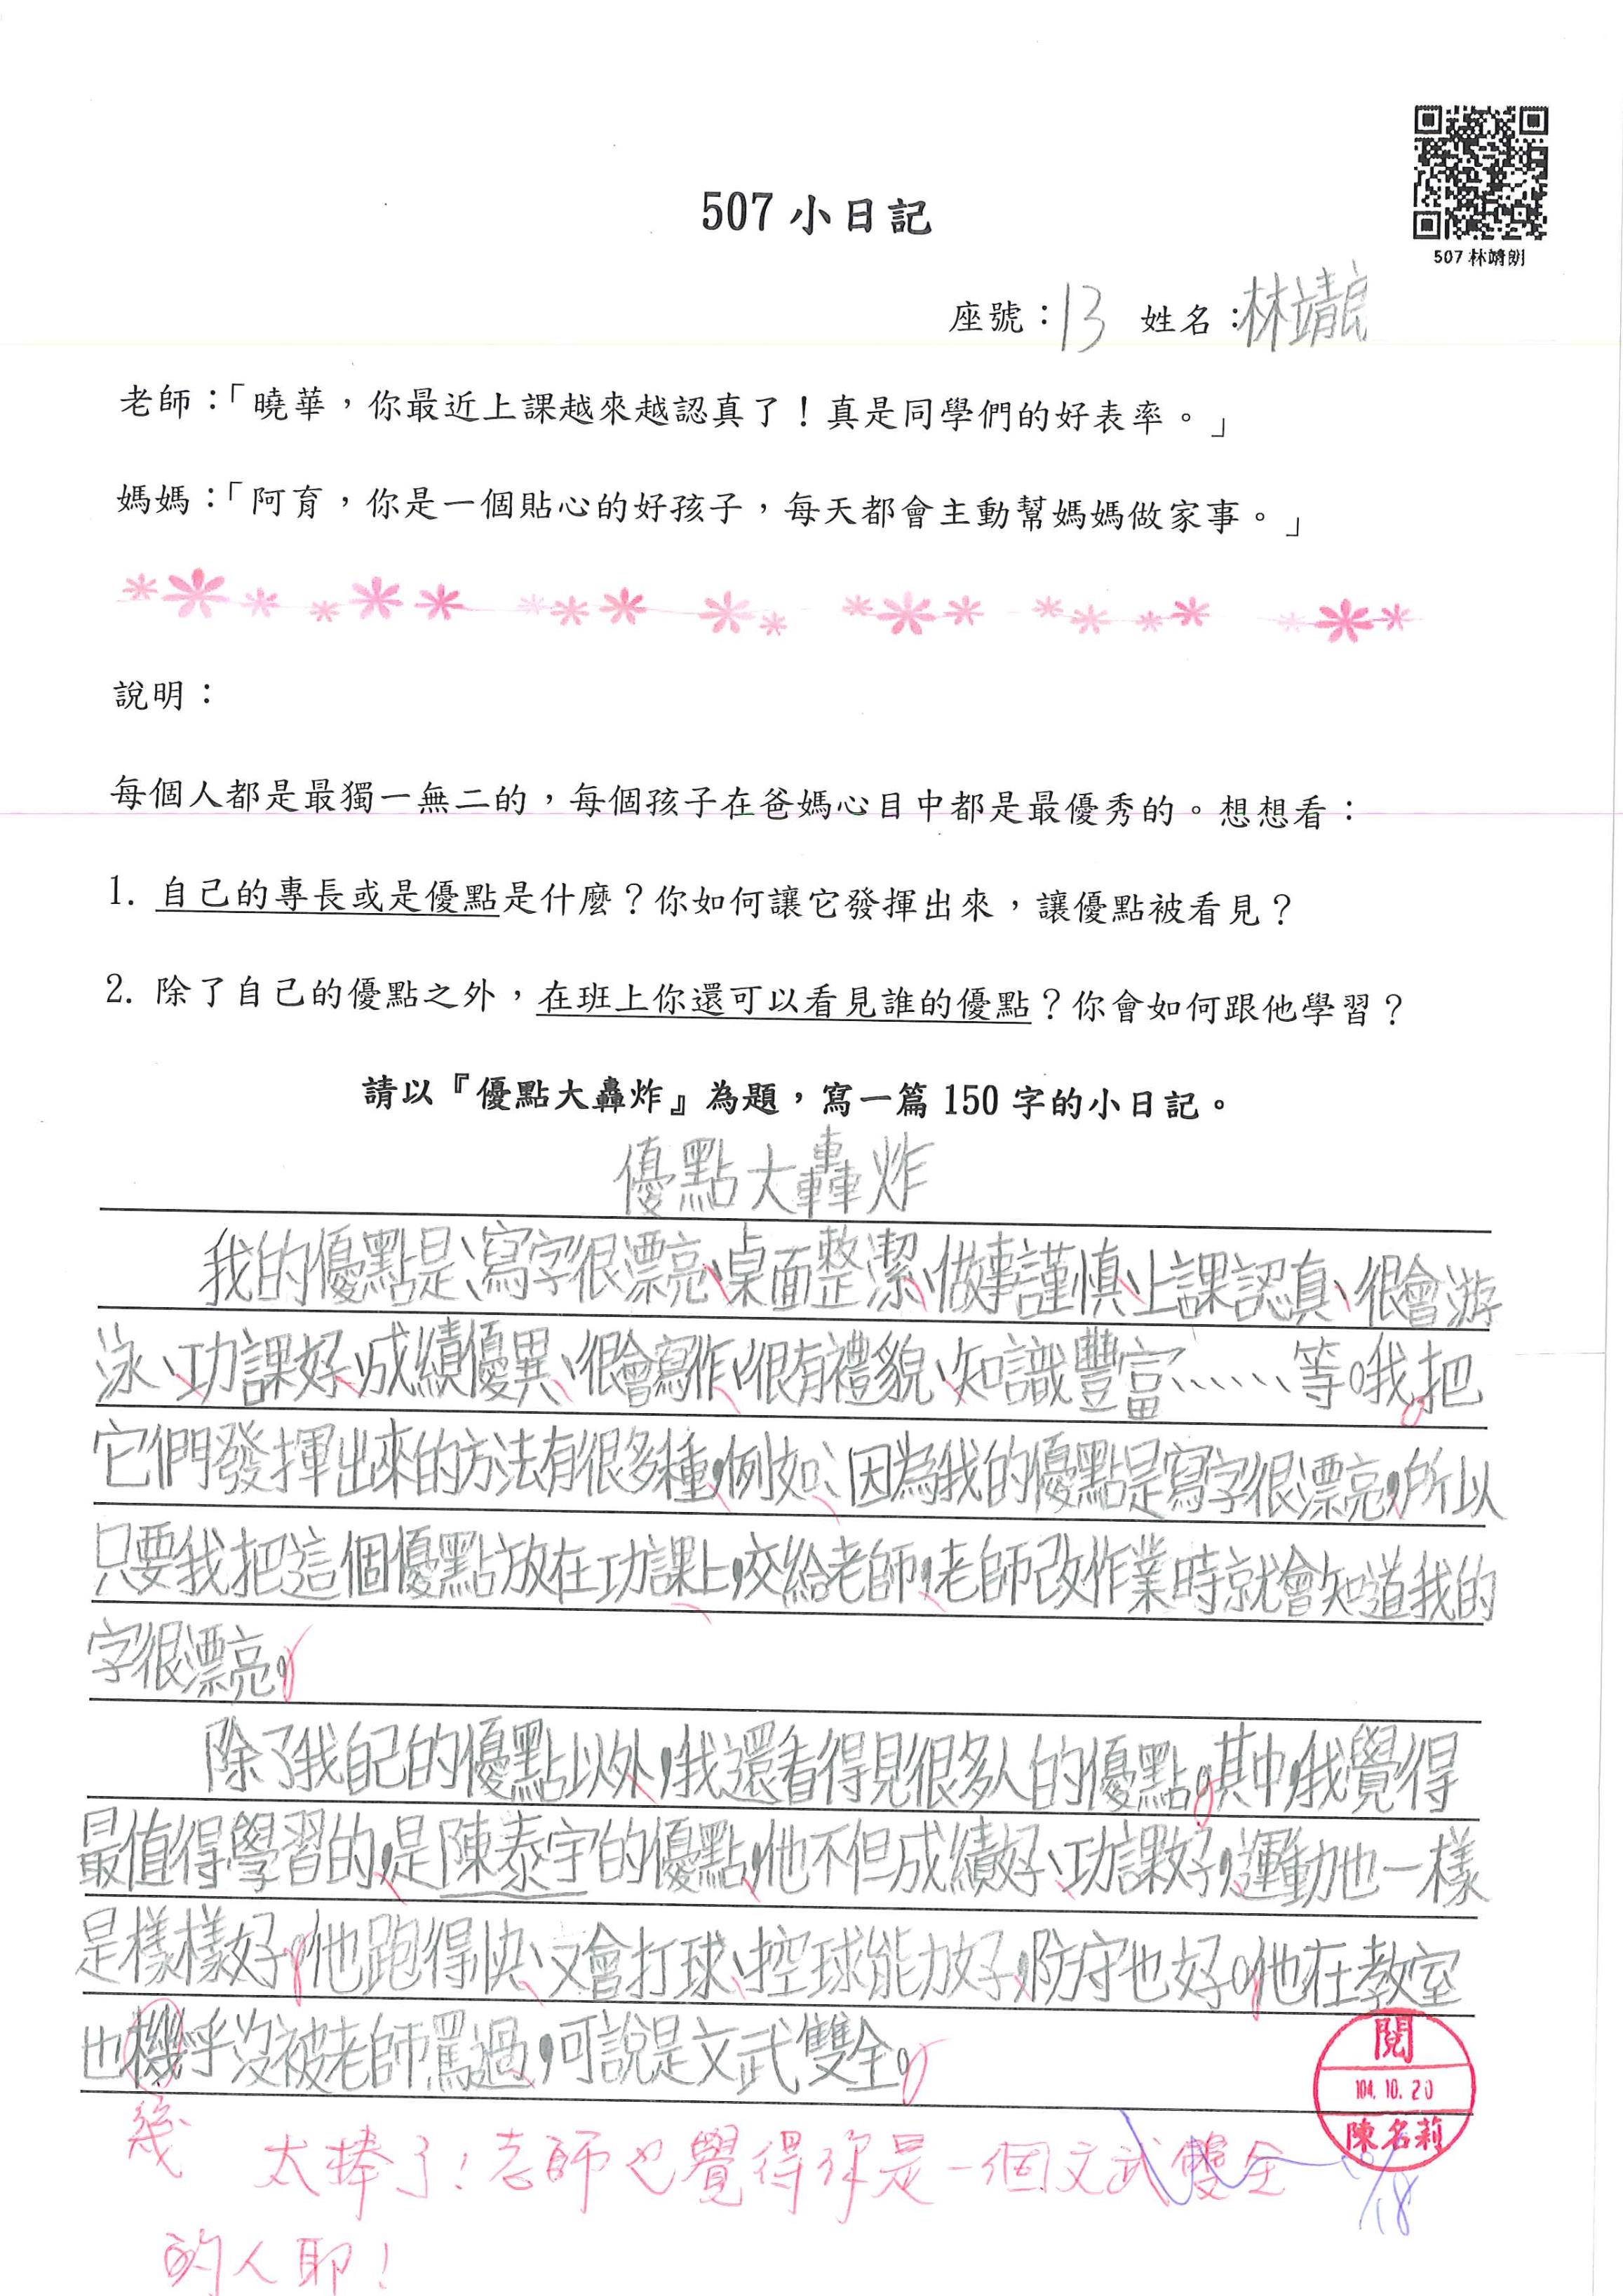 507 林靖朗
507 小日記
座號：13 姓名：林靖朗
老師：「曉華，你最近上課越來越認真了！真是同學們的好表率。」
媽媽：「阿育，你是一個貼心的好孩子，每天都會主動幫媽媽做家事。」
說明：
每個人都是最獨一無二的，每個孩子在爸媽心目中都是最優秀的。想想看：
1. 自己的專長或是優點是什麼？你如何讓它發揮出來，讓優點被看見？
2. 除了自己的優點之外，在班上你還可以看見誰的優點？你會如何跟他學習？
請以『優點大轟炸』為題，寫一篇 150 字的小日記。
優點大轟炸
我的優點是：寫字很漂亮、桌面整潔、做事謹慎、上課認真、很會游
泳、功課好、成績優異、很會寫作、很有禮貌、知識豐富……等。我把
它們發揮出來的方法有很多種，例如：因為我的優點是寫字很漂亮，所以
只要我把這個優點放在功課上，交給老師，老師改作業時就會知道我的
字很漂亮。
除了我自己的優點以外，我還看得見很多人的優點。其中，我覺得
最值得學習的，是陳泰宇的優點，他不但成績好、功課好，運動也一樣
是樣樣好。他跑得快、又會打球、控球能力好，防守也好。他在教室
也機乎沒被老師罵過，可說是文武雙全。
幾
太棒了！老師也覺得你是一個文武雙全
的人耶！
閱
104.10.20
陳名莉